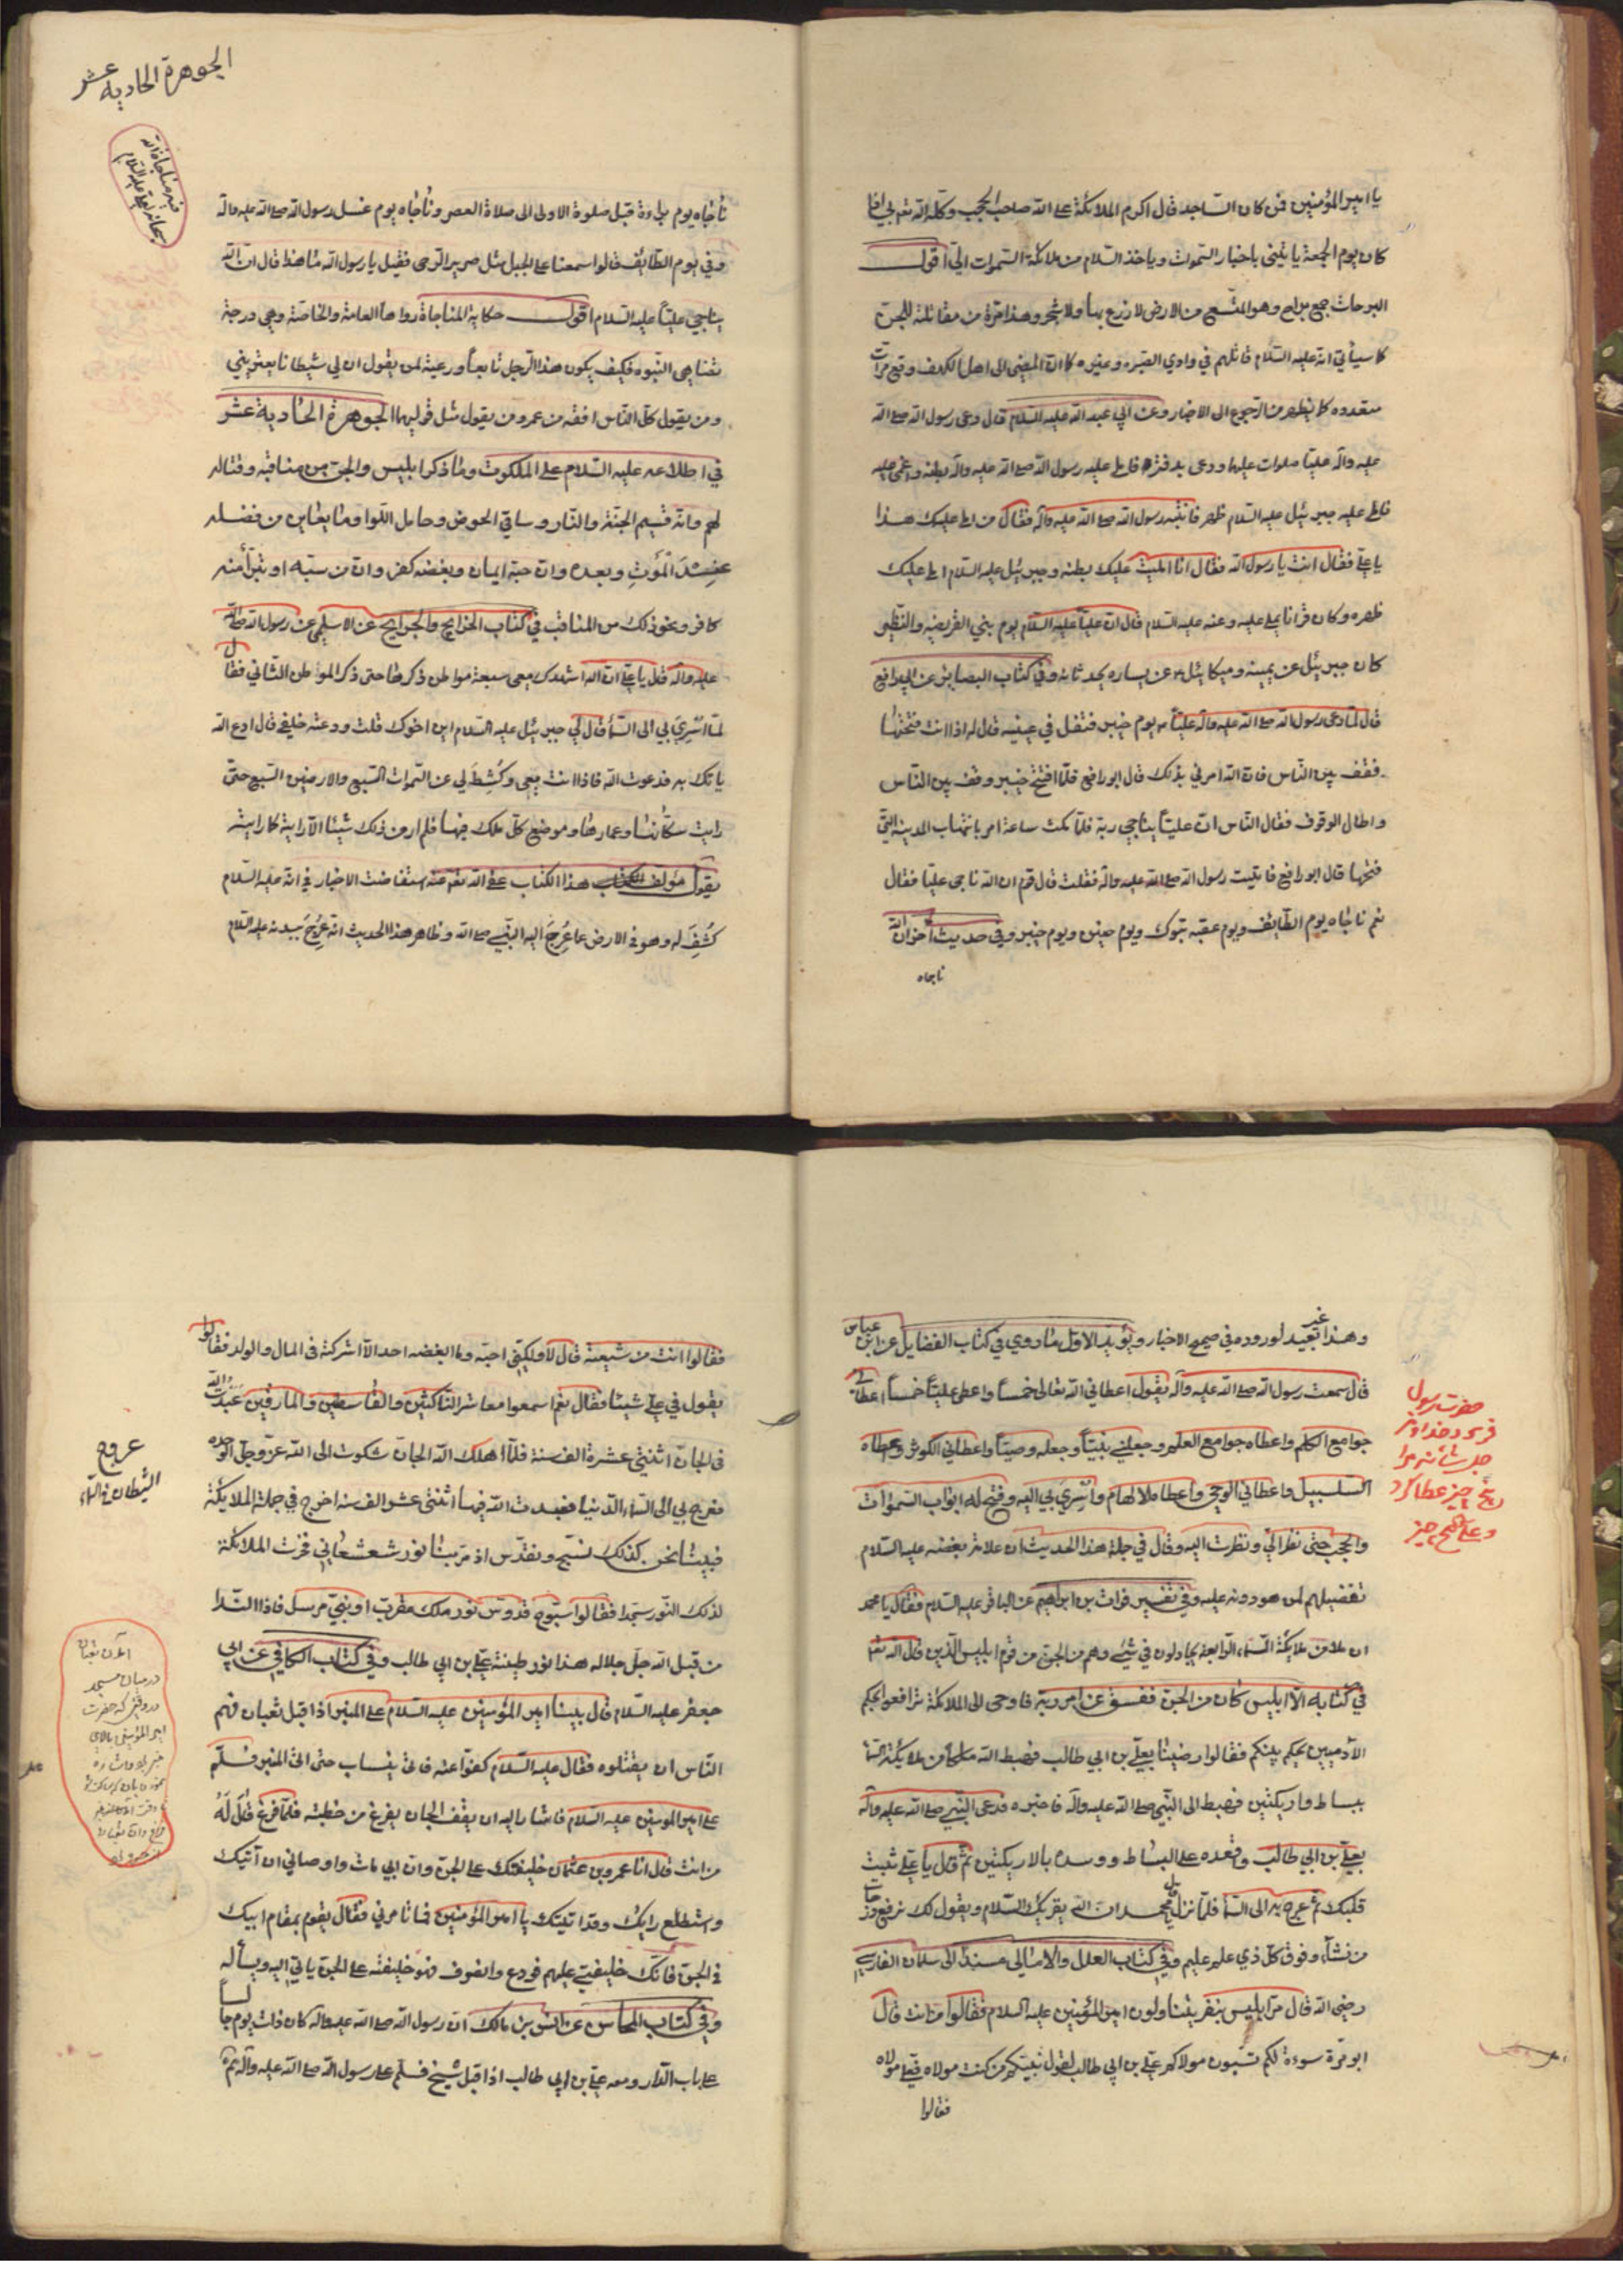 يا امير المؤمنين فمن كان الساجد قال اكرم الملائكة على الله صاحب الحجب وكلّه الله تعم بي اذا
كان يوم الجمعة يأتيني باخبار السموات وياخذ السلام من ملائكة السموات اليّ اقول
البراحات جمع براح وهو المتسع من الارض لا زرع بها ولا شجر وهذا مرة من مقاتلة للجن
كما سيأتي انه عليه السلام قاتلهم في وادي الصبره وغيره كما ان المضي الى اهل الكهف وقع مرات
متعدده كما يظهر من الرجوع الى الاخبار وعن ابي عبد الله عليه السلام قال دعى رسول الله صلى الله
عليه واله عليا صلوات عليها ودعى بدفتر فاملى عليه رسول الله صلى الله عليه واله بطنه واغمي عليه
فاملى عليه جبرئيل عليه السلام ظهره فانتبه رسول الله صلى الله عليه واله فقال من املى عليك هذا
يا علي فقال انت يا رسول الله فقال انا امليت عليك بطنه وجبرئيل عليه السلام املى عليك
ظهره وكان قرانا يملي عليه وعنه عليه السلام قال ان عليا عليه السلام يوم بني القريضه والنظير
كان جبرئيل عن يمينه وميكائيل عن يساره يحدثانه وفي كتاب البصائر عن ابي رافع
قال لما دعى رسول الله صلى الله عليه واله عليا يوم خيبر فتفل في عينيه قال له اذا انت فتحتها
فقف بين الناس فان الله امرني بذلك قال ابو رافع فلما افتتح خيبر وقف بين الناس
واطال الوقوف فقال الناس ان عليا يناجي ربه فلما مكث ساعة امر بانتهاب المدينه التي
فتحها قال ابو رافع فاتيت رسول الله صلى الله عليه واله فقلت قال قوم ان الله ناجى عليا فقال
نعم ناجاه يوم الطائف ويوم عقبه تبوك ويوم حنين ويوم خيبر وفي حديث اخر ان الله
ناجاه
الجوهرة الحادية عشر
ناجاه يوم براءة قبل صلوة الاولى الى صلاة العصر وناجاه يوم غسل رسول الله صلى الله عليه واله
وفي يوم الطائف قالوا سمعنا على الجبل مثل صرير الرحى فقيل يا رسول الله ما هذا قال ان الله
يناجي عليا عليه السلام اقول حكاية المناجاة رواها العامة والخاصة وهي درجة
تضاهي النبوه فكيف يكون هذا الرجل تابعا ورعية لمن يقول ان لي شيطانا يعتريني
ومن يقول كل الناس افقه من عمر ومن يقول مثل قوليهما الجوهرة الحادية عشر
في اطلاعه عليه السلام على الملكوت وما ذكر ابليس والجن من مناقبه وقتاله
لهم وانه قسيم الجنة والنار وساقي الحوض وحامل اللوا وما يعاين من فضله
عند الموت وبعده وان حبه ايمان وبغضه كفر وان من سبه او تبرأ منه
كافر ونحو ذلك من المناقب في كتاب الخرايج والجرايح عن الاسلمي عن رسول الله صلى الله
عليه واله قال يا علي ان الله اشهدك معي سبعة مواطن ذكرها حتى ذكر الموطن الثاني فقال
لما اسري بي الى السماء قال لي جبرئيل عليه السلام اين اخوك قلت ودعته خلفي قال ادع الله
ياتك به فدعوت الله فاذا انت معي وكشط لي عن السموات السبع والارضين السبع حتى
رايت سكانها وعمارها وموضع كل ملك فيها فلم ار من ذلك شيئا الا رايته كما رايته
يقول مؤلف هذا الكتاب عفى الله تعم عنه استفاضت الاخبار في انه عليه السلام
كُشِفَ له وهو في الارض عما عُرِجَ اليه النبي صلى الله وظاهر هذا الحديث انه عُرِجَ ببدنه عليه السلام
وهذا غير بعيد لوروده في صحيح الاخبار ويؤيد الاول ما روي في كتاب الفضايل عن ابن عباس
قال سمعت رسول الله صلى الله عليه واله يقول اعطاني الله تعالى خمسا واعطى عليا خمسا اعطاني
جوامع الكلم واعطاه جوامع العلم وجعلني نبيا وجعله وصيا واعطاني الكوثر واعطاه
السلسبيل واعطاني الوحي واعطاه الالهام واُسري بي اليه وفتح له ابواب السموات
والحجب حتى نظر اليّ ونظرت اليه وقال في جملة هذا الحديث ان علامة بغضه عليه السلام
تفضيلهم لمن هو دونه عليه وفي تفسير فرات بن ابراهيم عن الباقر عليه السلام فقال يا محمد
ان ملا من ملائكة السماء الرابعة يجادلون في شيء وهم من الجن من قوم ابليس الذين قال الله تعم
في كتابه الا ابليس كان من الجن ففسق عن امر ربه فاوحى الى الملائكة تراضوا بحكم
الآدميين يحكم بينكم فقالوا رضينا بعلي بن ابي طالب فهبط الله ملكا من ملائكة السماء
ببساط واريكتين فهبط الى النبي صلى الله عليه واله فاخبره فدعى النبي صلى الله عليه واله
بعلي بن ابي طالب واقعده على البساط ووسده بالاريكتين ثم قال يا علي ثبت
قلبك ثم عرج به الى السماء فلما نزل قال يا محمد ان الله يقريك السلام ويقول لك نرفع درجات
من نشاء وفوق كل ذي علم عليم وفي كتاب العلل والامالي مسندا الى سلمان الفارسي
رضي الله قال مر ابليس بنفر يتناولون امير المؤمنين عليه السلام فقالوا من انت قال
ابو مرة سوءة لكم تسبون مولاكم علي بن ابي طالب لقول نبيكم من كنت مولاه فعلي مولاه
فقالوا
حضرت رسول
فرمود خداوند
جل شانه مرا
پنج چيز عطا كرد
وعلى پنج چيز
فقالوا انت من شيعته قال لا ولكني احبه وما ابغضه احد الا شركته في المال والولد فقالوا
يقول في علي شيئا فقال نعم اسمعوا معاشر الناكثين والقاسطين والمارقين عبدت الله
في الجان اثنتي عشرة الف سنة فلما اهلك الله الجان شكوت الى الله عز وجل الوحده
فعرج بي الى السماء الدنيا فعبدت الله فيها اثنتي عشر الف سنه اخرى في جملة الملايكة
فبينا نحن كذلك نسبح ونقدس اذ مر بنا نور شعشعاني فخرت الملائكة
لذلك النور سجدا فقالوا سبوح قدوس نور ملك مقرب او نبي مرسل فاذا النداء
من قبل الله جل جلاله هذا نور طينة علي بن ابي طالب وفي كتاب الكافي عن ابي
جعفر عليه السلام قال بينا امير المؤمنين عليه السلام على المنبر اذ اقبل ثعبان فهم
الناس ان يقتلوه فقال عليه السلام كفوا عنه فاتى ينساب حتى اتى المنبر فسلم
على امير المومنين عليه السلام فاشار اليه ان يقف الجان يفرغ من خطبته فلما فرغ قال له
من انت قال انا عمرو بن عثمان خليفتك على الجن وان ابي مات واوصاني ان آتيك
واستطلع رايك وقد اتيتك يا امير المؤمنين فما تامرني فقال يقوم بمقام ابيك
في الجن فانك خليفتي عليهم فودع وانصرف فهو خليفته على الجن ياتي اليه ويسأله
وفي كتاب المحاسن عن انس بن مالك ان رسول الله صلى الله عليه واله كان ذات يوم جالسا
على باب الدار ومعه علي بن ابي طالب اذ اقبل شيخ فسلم على رسول الله صلى الله عليه واله ثم
عروج
الشيطان في السماء
در ميان مسجد
در وقتى كه حضرت
امير المؤمنين بالاى